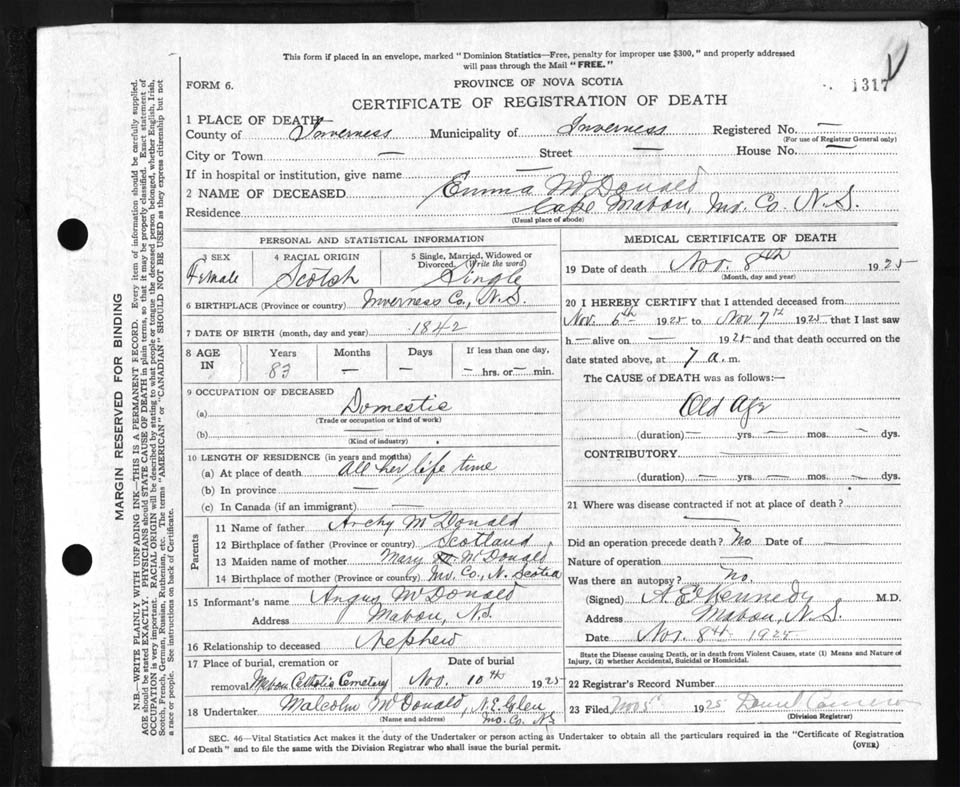 This form if placed in an envelope, marked "Dominion Statistics—Free, penalty for improper use $300," and properly addressed
will pass through the Mail "FREE."
FORM 6.
PROVINCE OF NOVA SCOTIA
1317
CERTIFICATE OF REGISTRATION OF DEATH
1 PLACE OF DEATH
County of Inverness Municipality of Inverness Registered No. —
(For use of Registrar General only)
City or Town — Street — House No. —
If in hospital or institution, give name —
2 NAME OF DECEASED Emma McDonald
Residence Cape Mabou, Inv. Co. N.S.
(Usual place of abode)
PERSONAL AND STATISTICAL INFORMATION
3 SEX Female
4 RACIAL ORIGIN Scotch
5 Single, Married, Widowed or Divorced (Write the word) Single
6 BIRTHPLACE (Province or country) Inverness Co., N.S.
7 DATE OF BIRTH (month, day and year) 1842
8 AGE IN Years 83 Months — Days — If less than one day, — hrs. or — min.
9 OCCUPATION OF DECEASED
(a) Domestic
(Trade or occupation or kind of work)
(b) —
(Kind of industry)
10 LENGTH OF RESIDENCE (in years and months)
(a) At place of death all her life time
(b) In province —
(c) In Canada (if an immigrant) —
Parents
11 Name of father Archy McDonald
12 Birthplace of father (Province or country) Scotland
13 Maiden name of mother Mary McDonald
14 Birthplace of mother (Province or country) Inv. Co., N. Scotia
15 Informant's name Angus McDonald
Address Mabou, N.S.
16 Relationship to deceased Nephew
17 Place of burial, cremation or removal Mabou Catholic Cemetery Date of burial Nov. 10th 1925
18 Undertaker Malcolm McDonald, N.E. Glen
(Name and address) Inv. Co. N.S.
MEDICAL CERTIFICATE OF DEATH
19 Date of death Nov. 8th 1925
(Month, day and year)
20 I HEREBY CERTIFY that I attended deceased from
Nov. 6th 1925 to Nov 7th 1925 that I last saw
h— alive on — 1925 and that death occurred on the
date stated above, at 7 a. m.
The CAUSE OF DEATH was as follows:—
Old Age
(duration) — yrs. — mos. — dys.
CONTRIBUTORY —
(duration) — yrs. — mos. — dys.
21 Where was disease contracted if not at place of death?
—
Did an operation precede death? No Date of —
Nature of operation —
Was there an autopsy? no.
(Signed) A. E. Kennedy M.D.
Address Mabou, N.S.
Date Nov. 8th 1925
State the Disease causing Death, or in death from Violent Causes, state (1) Means and Nature of
Injury, (2) whether Accidental, Suicidal or Homicidal.
22 Registrar's Record Number
23 Filed 1925
(Division Registrar)
SEC. 46—Vital Statistics Act makes it the duty of the Undertaker or person acting as Undertaker to obtain all the particulars required in the "Certificate of Registration
of Death" and to file the same with the Division Registrar who shall issue the burial permit.
(OVER)
MARGIN RESERVED FOR BINDING
N.B.—WRITE PLAINLY WITH UNFADING INK—THIS IS A PERMANENT RECORD. Every item of information should be carefully supplied.
AGE should be stated EXACTLY. PHYSICIANS should STATE CAUSE OF DEATH in plain terms, so that it may be properly classified. Exact statement of
OCCUPATION is very important. RACIAL ORIGIN will be described by stating to what people or tongue the deceased person belonged, whether English, Irish,
Scotch, French, German, Russian, Ruthenian, etc. The terms "AMERICAN" or "CANADIAN" SHOULD NOT BE USED as they express citizenship but not
a race or people. See instructions on back of Certificate.